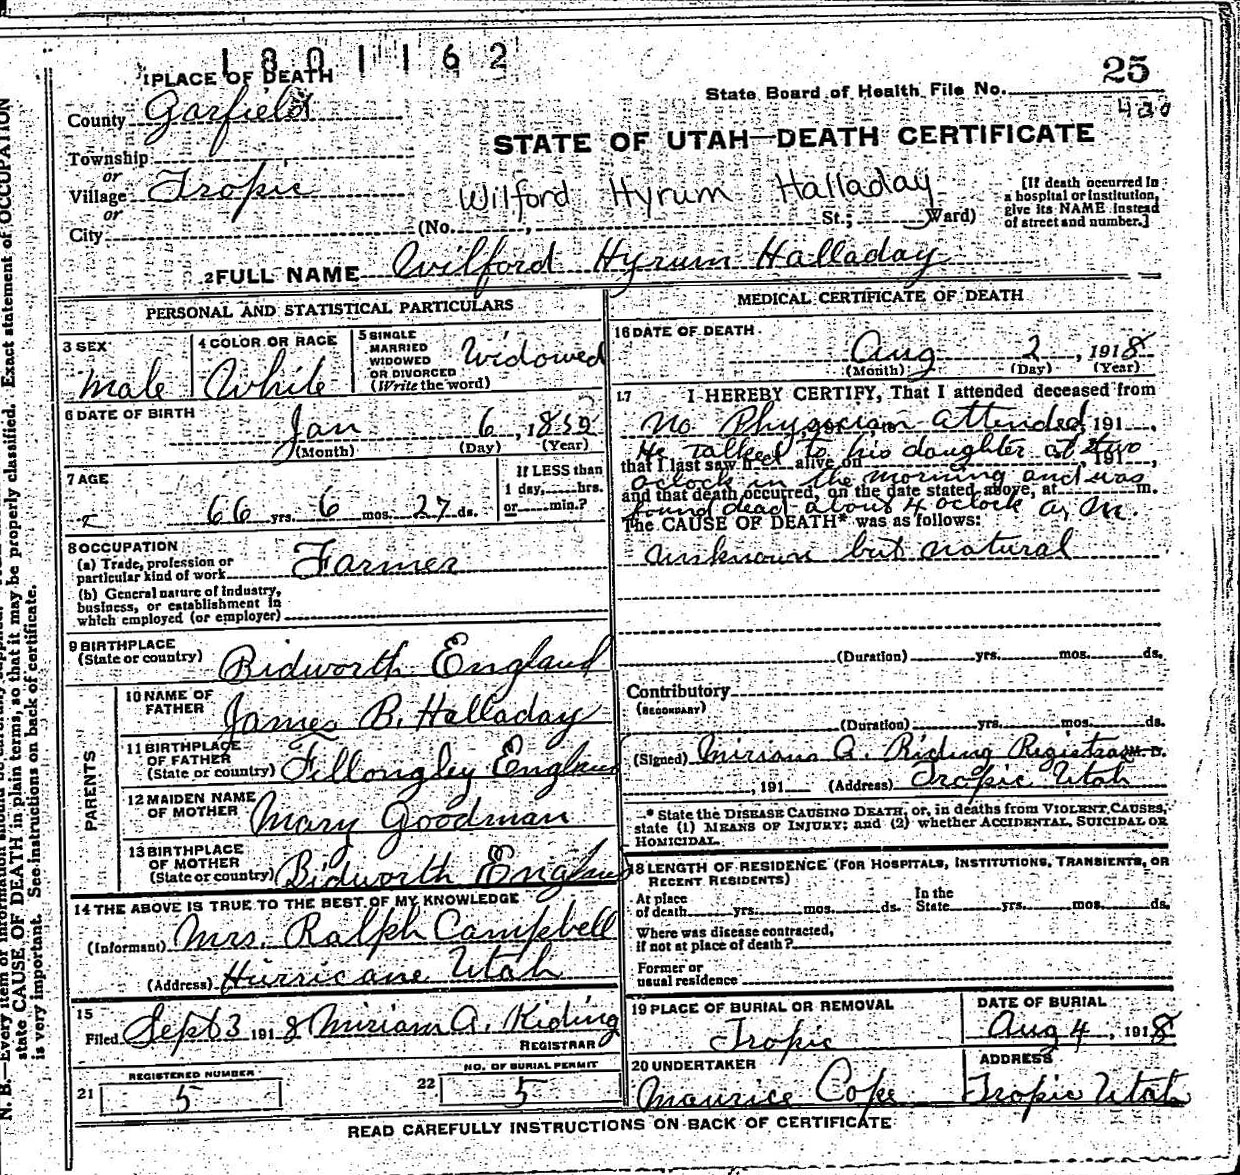 1801162
25
State Board of Health File No.
420
1 PLACE OF DEATH
County Garfield
STATE OF UTAH—DEATH CERTIFICATE
Township
or
Village Tropic
or
City
Wilford Hyrum Halladay
(No. , St.; Ward)
[If death occurred in
a hospital or institution,
give its NAME instead
of street and number.]
2 FULL NAME Wilford Hyrum Halladay
PERSONAL AND STATISTICAL PARTICULARS
3 SEX
Male
4 COLOR OR RACE
White
5 SINGLE
MARRIED
WIDOWED
OR DIVORCED
(Write the word)
Widowed
6 DATE OF BIRTH
Jan 6, 1852
(Month) (Day) (Year)
7 AGE
66 yrs. 6 mos. 27 ds.
If LESS than
1 day, hrs.
or min.?
8 OCCUPATION
(a) Trade, profession or
particular kind of work Farmer
(b) General nature of industry,
business, or establishment in
which employed (or employer)
9 BIRTHPLACE
(State or country) Bidworth England
PARENTS
10 NAME OF
FATHER James B. Halladay
11 BIRTHPLACE
OF FATHER
(State or country) Fillongley England
12 MAIDEN NAME
OF MOTHER Mary Goodman
13 BIRTHPLACE
OF MOTHER
(State or country) Bidworth England
14 THE ABOVE IS TRUE TO THE BEST OF MY KNOWLEDGE
(Informant) Mrs. Ralph Campbell
(Address) Hurricane Utah
15
Filed Sept 3 1918 Miriam A. Riding
REGISTRAR
21 REGISTERED NUMBER
5
22 NO. OF BURIAL PERMIT
5
MEDICAL CERTIFICATE OF DEATH
16 DATE OF DEATH
Aug 2, 1918
(Month) (Day) (Year)
17 I HEREBY CERTIFY, That I attended deceased from
No Physician attended, 191
He talked to his daughter at two
that I last saw h alive on , 191 ,
oclock in the morning and was
and that death occurred, on the date stated above, at m.
found dead about 4 oclock a. m.
The CAUSE OF DEATH* was as follows:
Unknown but natural
(Duration) yrs. mos. ds.
Contributory
(SECONDARY)
(Duration) yrs. mos. ds.
(Signed) Miriam A. Riding Registrar M. D.
, 191 (Address) Tropic Utah
* State the DISEASE CAUSING DEATH, or, in deaths from VIOLENT CAUSES,
state (1) MEANS OF INJURY; and (2) whether ACCIDENTAL, SUICIDAL OR
HOMICIDAL.
18 LENGTH OF RESIDENCE (FOR HOSPITALS, INSTITUTIONS, TRANSIENTS, OR
RECENT RESIDENTS)
At place
of death yrs. mos. ds.
In the
State yrs. mos. ds.
Where was disease contracted,
if not at place of death?
Former or
usual residence
19 PLACE OF BURIAL OR REMOVAL
Tropic
DATE OF BURIAL
Aug 4, 1918
20 UNDERTAKER
Maurice Cope
ADDRESS
Tropic Utah
READ CAREFULLY INSTRUCTIONS ON BACK OF CERTIFICATE
N. B.—Every item of information should be carefully supplied. Exact statement of OCCUPATION
state CAUSE OF DEATH in plain terms, so that it may be properly classified.
is very important. See instructions on back of certificate.